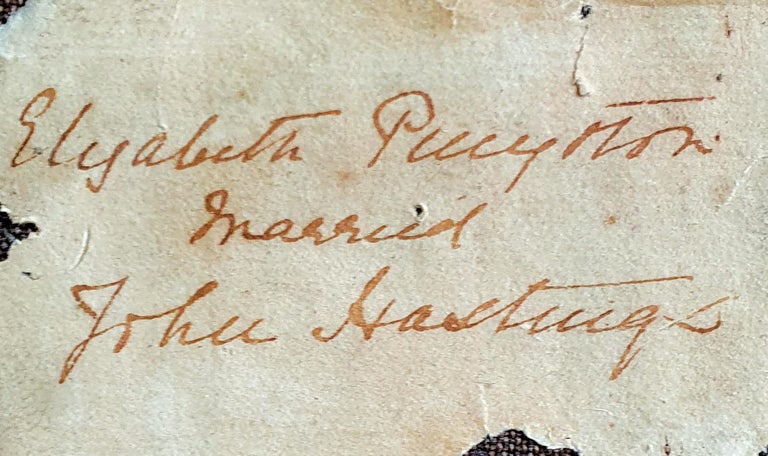 Elizabeth Pinyston
Married
John Hastings